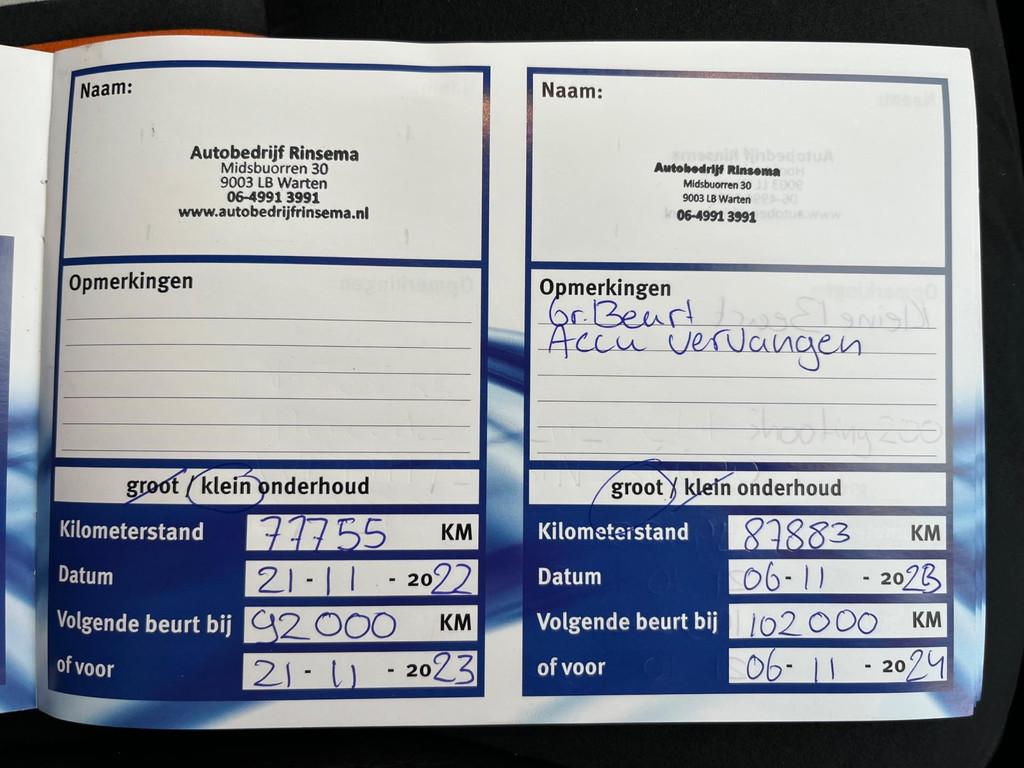 Naam:
Autobedrijf Rinsema
Midsbuorren 30
9003 LB Warten
06-4991 3991
www.autobedrijfrinsema.nl
Opmerkingen
groot / klein onderhoud
Kilometerstand 77755 KM
Datum 21-11-2022
Volgende beurt bij 92000 KM
of voor 21-11-2023
Naam:
Autobedrijf Rinsema
Midsbuorren 30
9003 LB Warten
06-4991 3991
Opmerkingen
Gr. Beurt
Accu vervangen
groot / klein onderhoud
Kilometerstand 87883 KM
Datum 06-11-2023
Volgende beurt bij 102000 KM
of voor 06-11-2024